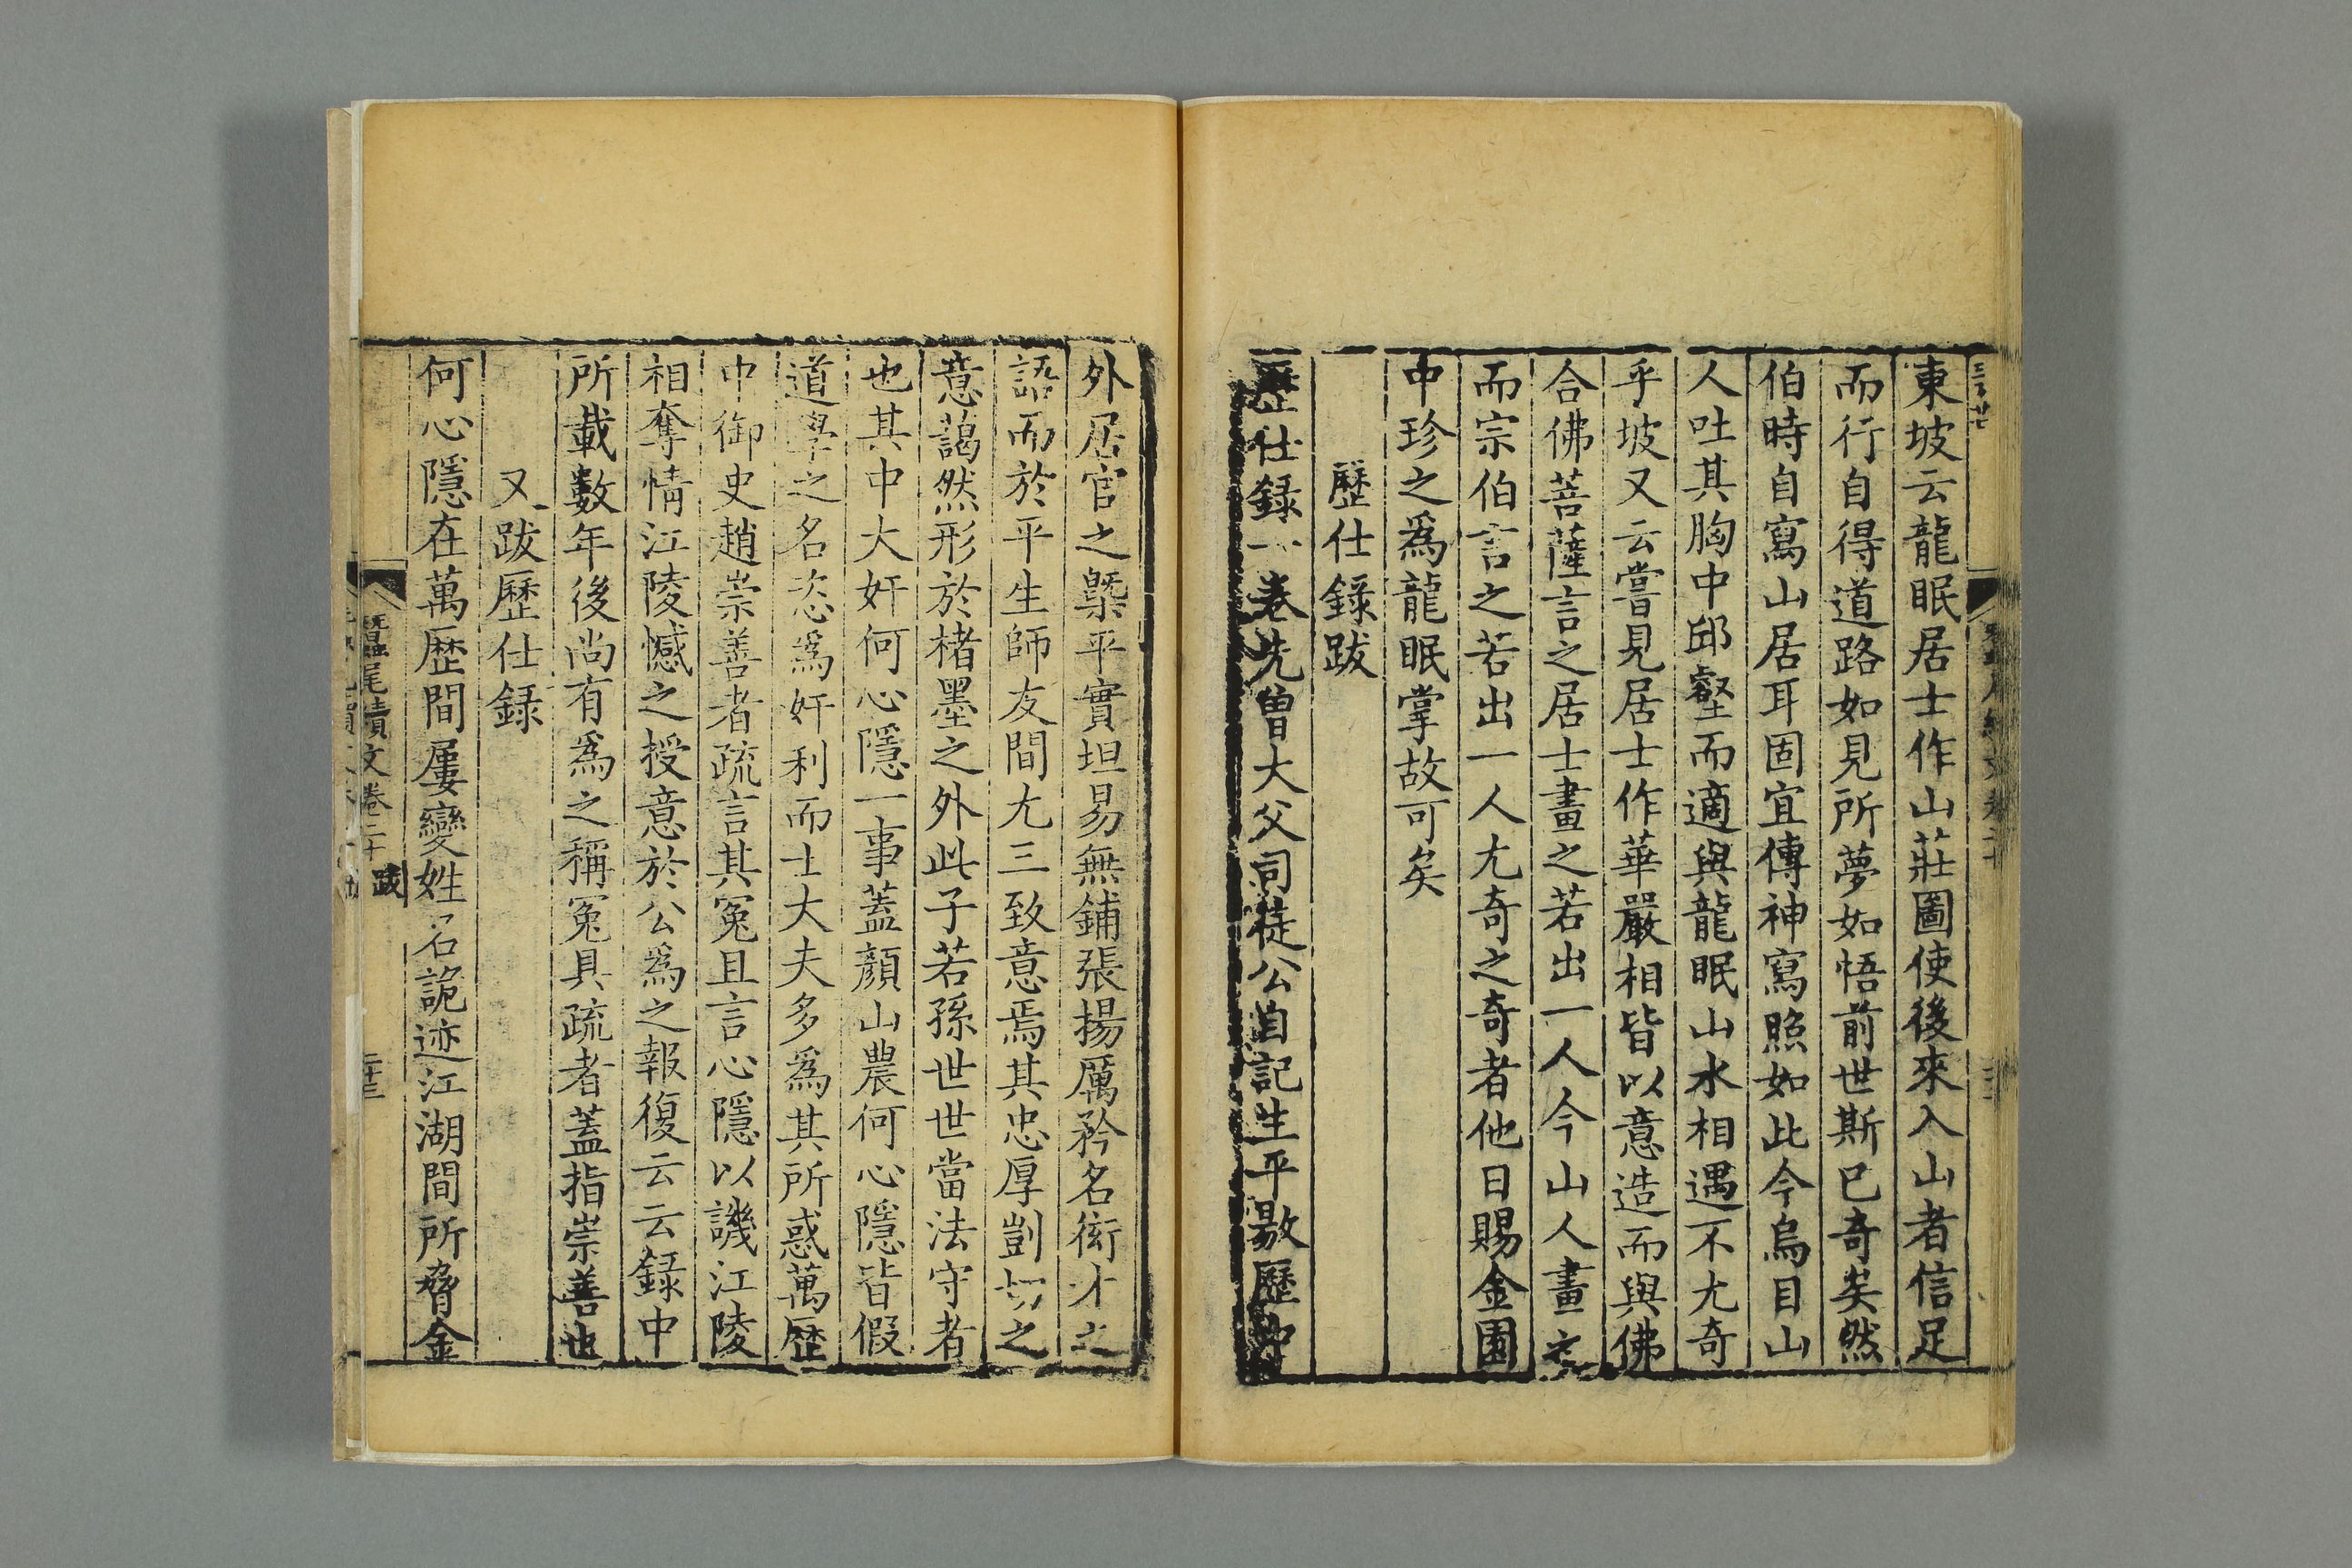 東坡云龍眠居士作山莊圖使後來入山者信足
而行自得道路如見所夢如悟前世斯已奇矣然
伯時自寫山居耳固宜傳神寫照如此今烏目山
人吐其胸中邱壑而適與龍眠山水相遇不尤奇
乎坡又云嘗見居士作華嚴相皆以意造而與佛
合佛菩薩言之居士畫之若出一人今山人畫之
而宗伯言之若出一人尤奇之奇者他日賜金園
中珍之爲龍眠掌故可矣
歷仕録跋
歷仕録一卷先曾大父司徒公自記生平敭歷中
外居官之槩平實坦易無鋪張揚厲矜名衒才之
語而於平生師友間尢三致意焉其忠厚剴切之
意藹然形於楮墨之外此子若孫世世當法守者
也其中大奸何心隱一事蓋顔山農何心隱皆假
道學之名恣爲奸利而士大夫多爲其所惑萬歴
中御史趙崇善者疏言其冤且言心隱以譏江陵
相奪情江陵憾之授意於公爲之報復云云録中
所載數年後尚有爲之稱冤具疏者蓋指崇善也
又跋歷仕録
何心隱在萬歴間屢變姓名詭迹江湖間所脅金
蠶尾續文卷二十 跋 二十三